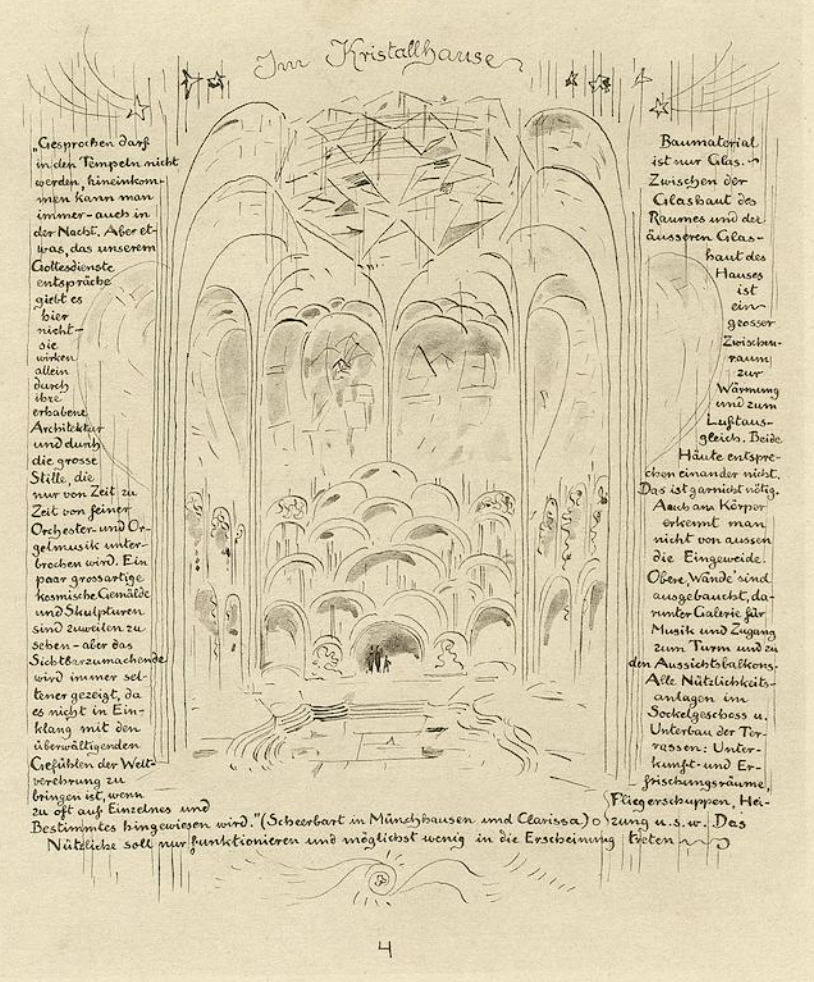 Im Kristallhause
„Gesprochen darf
in den Tempeln nicht
werden, hineinkom-
men kann man
immer – auch in
der Nacht. Aber et-
was, das unserem
Gottesdienste
entspräche
giebt es
hier
nicht –
sie
wirken
allein
durch
ihre
erhabene
Architektur
und durch
die grosse
Stille, die
nur von Zeit zu
Zeit von feiner
Orchester- und Or-
gelmusik unter-
brochen wird. Ein
paar grossartige
kosmische Gemälde
und Skulpturen
sind zuweilen zu
sehen – aber das
Sichtbarzumachende
wird immer sel-
tener gezeigt, da
es nicht in Ein-
klang mit den
überwältigenden
Gefühlen der Welt-
verehrung zu
bringen ist, wenn
zu oft auf Einzelnes und
Bestimmtes hingewiesen wird." (Scheerbart in Münchhausen und Clarissa) o
Baumaterial
ist nur Glas. –
Zwischen der
Glashaut des
Raumes und der
äusseren Glas-
haut des
Hauses
ist
ein
grosser
Zwischen-
raum
zur
Wärmung
und zum
Luftaus-
gleich. Beide
Häute entspre-
chen einander nicht.
Das ist garnicht nötig.
Auch am Körper
erkennt man
nicht von aussen
die Eingeweide.
Obere ‚Wände' sind
ausgebaucht, da-
runter Galerie für
Musik und Zugang
zum Turm und zu
den Aussichtsbalkons.
Alle Nützlichkeits-
anlagen im
Sockelgeschoss u.
Unterbau der Ter-
rassen: Unter-
kunft- und Er-
frischungsräume,
Fliegerschuppen, Hei-
zung u.s.w. Das
Nützliche soll nur funktionieren und möglichst wenig in die Erscheinung treten
4